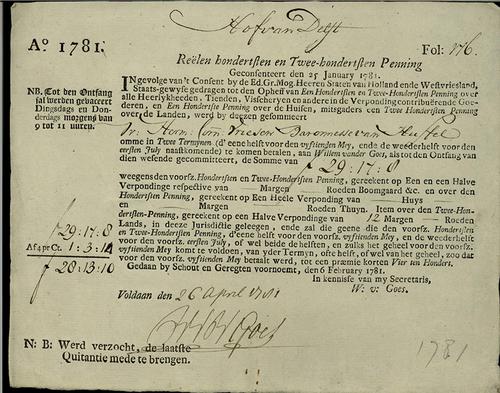 Hof van Delft
Aº 1781.
Fol: 176.
Reëlen hondertsten en Twee-hondersten Penning
Geconsenteert den 25 January 1781.
NB. Tot den Ontfang
sal werden gevaceert
Dingsdags en Don-
derdags morgens van
9 tot 11 uuren.
IN gevolge van't Consent by de Ed. Gr. Mog. Heeren Staten van Holland ende Westvriesland,
Staats-gewyse gedragen tot den Ophef van Een Hondertste en Twee-Hondertste Penning over
alle Heerlykheden, Tienden, Visscheryen en andere in de Verponding contribuerende Goe-
deren, en Een Hondertste Penning over de Huisen, mitsgaders een Twee Honderste Penning
over de Landen, werd by desen gesommeert
Vr. Corn: Baronnesse van
omme in Twee Termynen (d'eene helft voor den vyftienden Mey, ende de wederhelft voor den
eersten July naastkomende) te komen betalen, aan Willem vander Goes, als tot den Ontfang
dien wesende gecommitteert, de Somme van ƒ 29:17:8
weegens den voorsz. Hondersten en Twee-Hondertsten Penning, gereekent op Een en een Halve
Verpondinge respective van Margen Roeden Boomgaard &c. en over den
Hondersten Penning, gereekent op Een Heele Verponding van Huys
en Margen Roeden Thuyn. Item over den Twee-Hon-
dersten-Penning, gereekent op Halve Verpondinge van 12 Margen Roeden
Lands, in deeze Jurisdictie geleegen, ende zal die geene die den voorsz. Hondersten
en Twee-Hondertsten Penning, d'eene helft voor den voorsz. vyftienden Mey, en de wederhelft
voor den voorsz. eersten July, of wel beide de helften, en zulks het geheel voor den voorsz.
vyftienden Mey komt te voldoen, van yder Termyn, ofte helft, of wel van het geheel, zoo dat
voor den voorsz. vyftienden Mey betaalt werd, tot een præmie korten Vier ten Honderd.
ƒ 29:17:8
Af 4 pr Ct. 1:3:14
ƒ 28:13:10
Gedaan by Schout en Geregten voornoemt, den 6 February 1781.
In kennisse van my Secretaris,
W. v: Goes.
Voldaan den 26 April 1781
Goes
N: B: Werd verzocht, de laatste
Quitantie mede te brengen.
1781